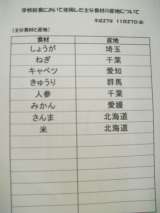 学校給食において使用した主な食材の産地について
平成27年 11月27日(金)
(主な食材と産地)
食材 産地
しょうが 埼玉
ねぎ 千葉
キャベツ 愛知
きゅうり 群馬
人参 千葉
みかん 愛媛
さんま 北海道
米 北海道